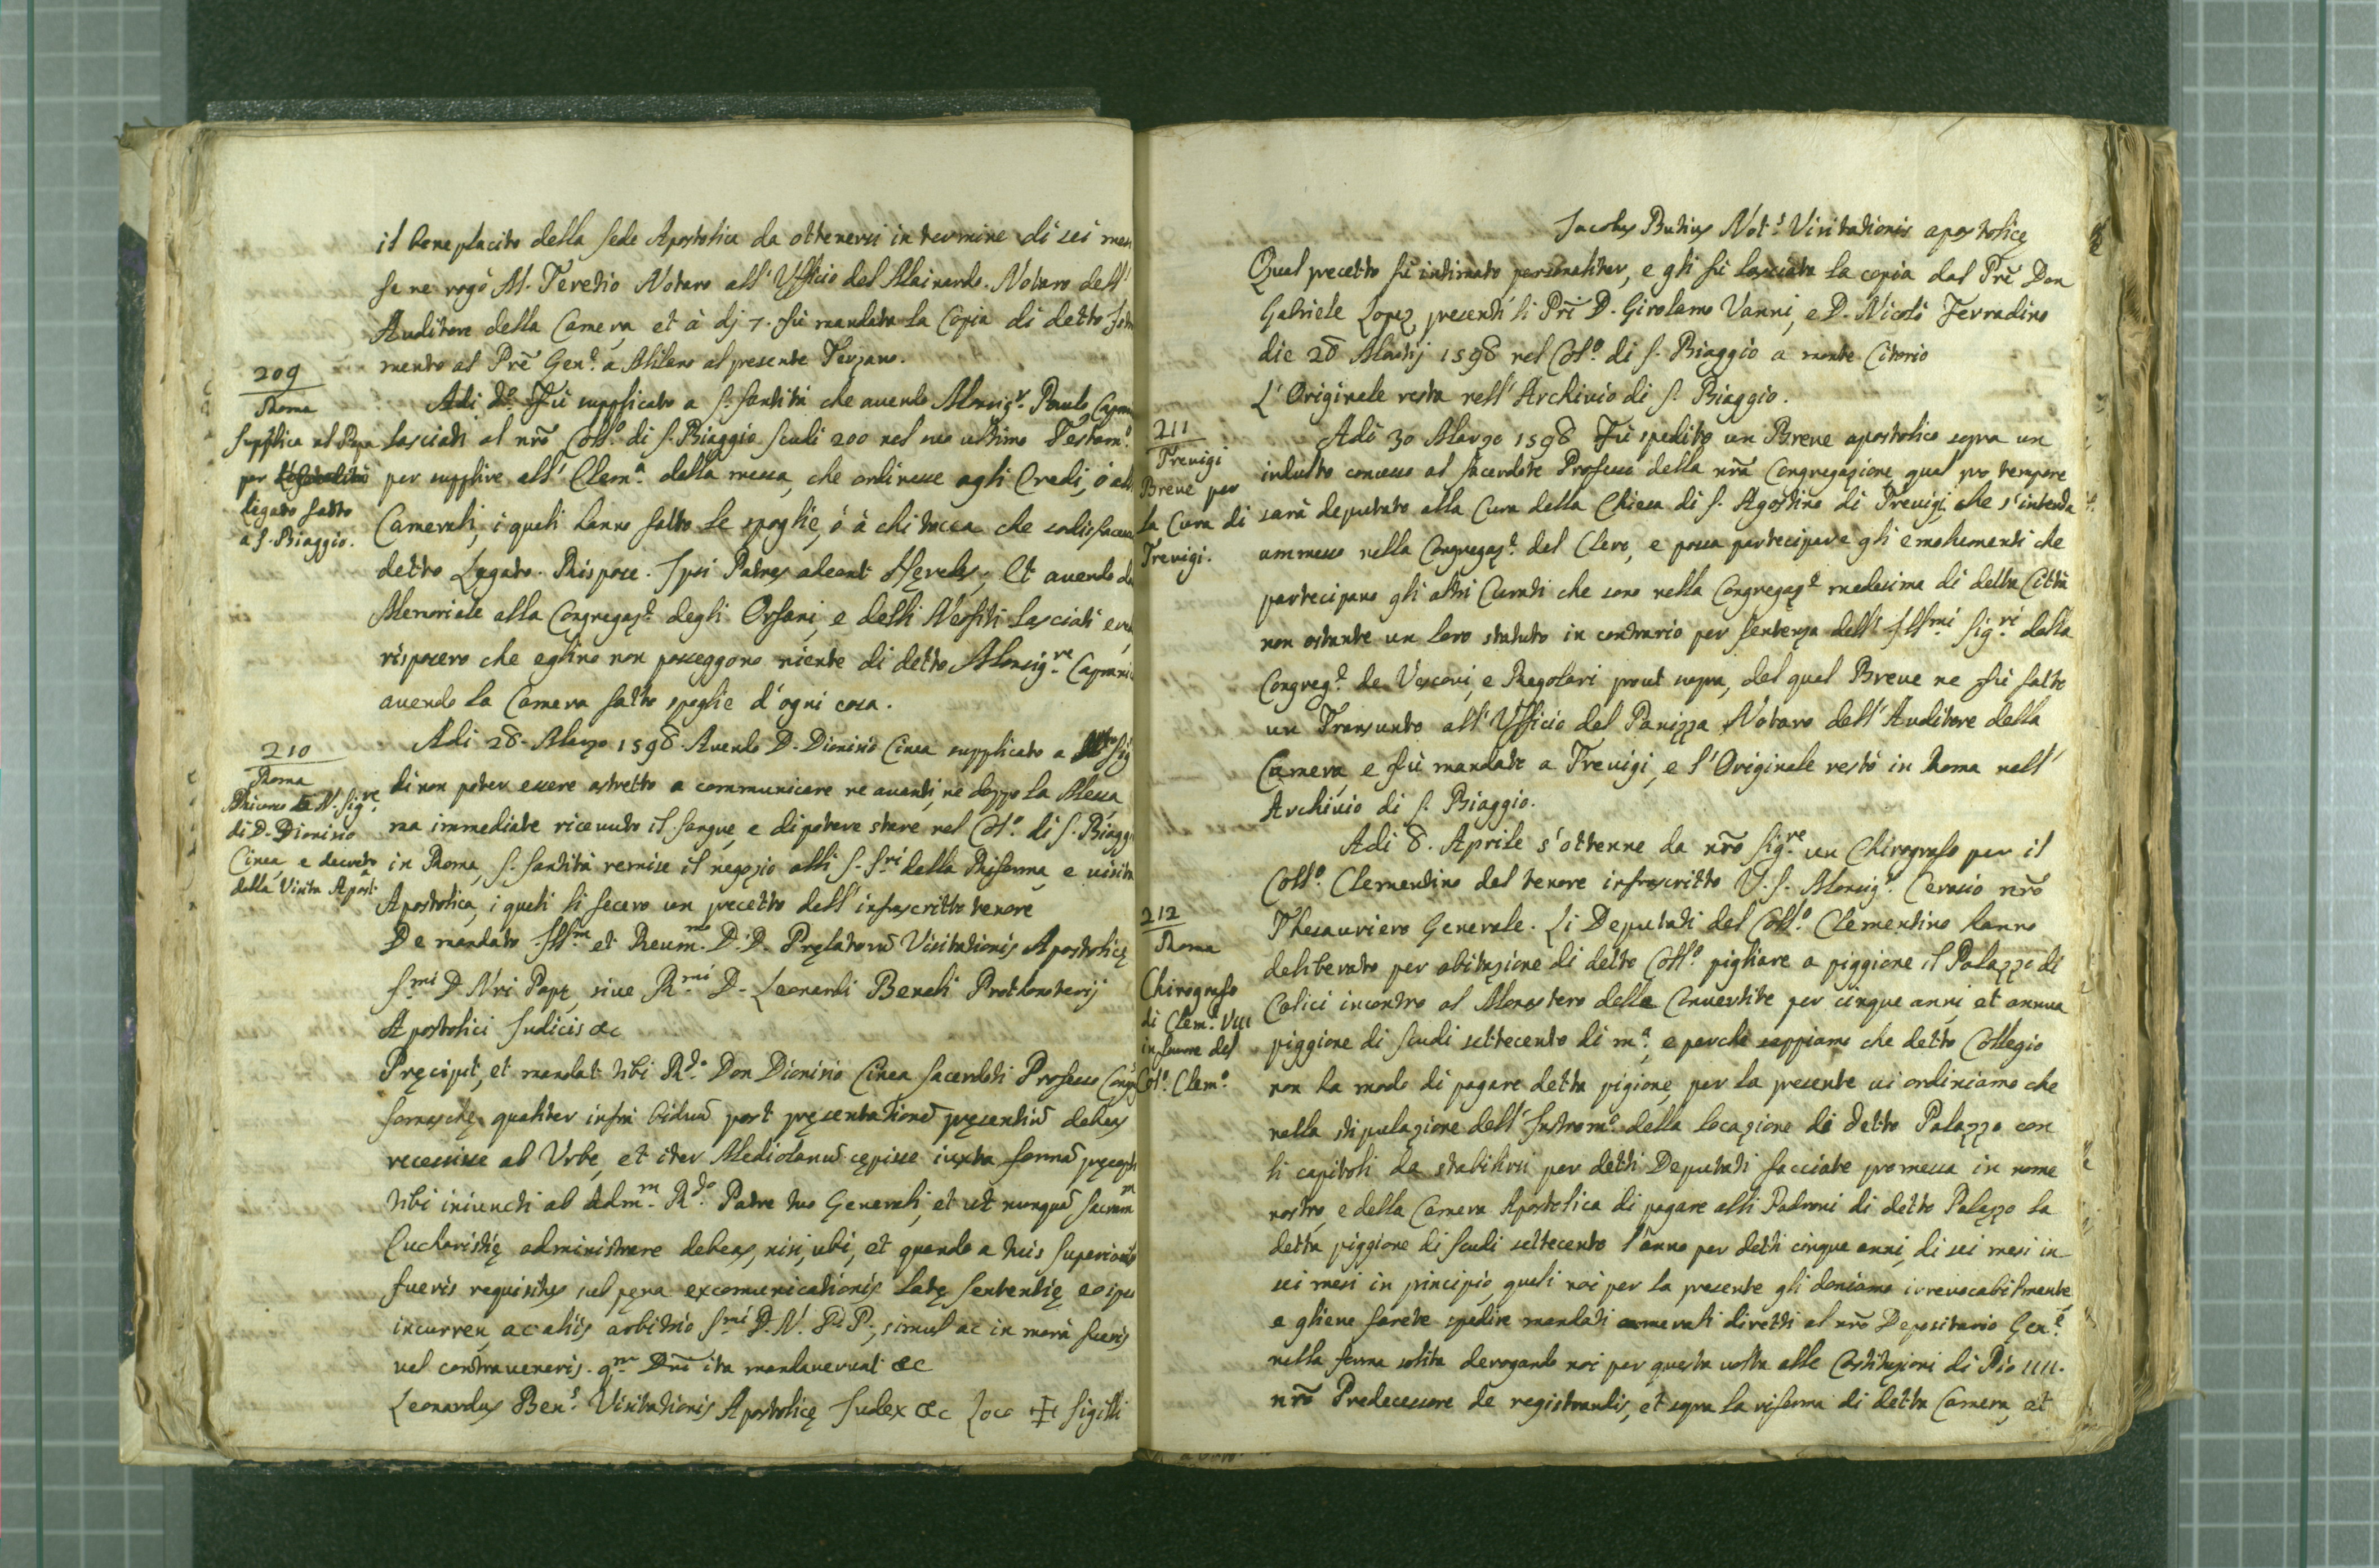 il beneplacito della Sede Apostolica da ottenersi in termine di sei
se ne rogò M. Teretio Notaro all' Ufficio del Mainardo. Notaro dell'
Auditore della Camera, et à dj 7. fù mandata la Copia di detto
mento al Prẽ Gen.e a Milano al presente Terzano.
209
Roma
Supplica al Papa
per
legato fatto
a S. Biaggio.
Adi d.o Fù supplicato a S. Santità che auendo Monsig.r Paulo
lasciati al nr̃o Coll.o di S. Biaggio Scudi 200 nel suo ultimo Testam.o
per supplire all' Elem.a della messa, che ordinasse agli Eredi, ó
Camerali, i quali hanno fatto le spoglie, ó à chi tocca che
detto Legato. Rispose. Ipsi Patres adeant Heredes; Et auendo
Memoriale alla Congregaz.e degli Orfani, e delli Neofiti lasciati
risposero che eglino non posseggono niente di detto Monsig.re
auendo la Camera fatto spoglie d'ogni cosa.
210
Roma
Ricorso N. Sig.re
di D. Dionisio
Cinea, e decreto
della Visita Apost.a
Adi 28. Marzo 1598. Auendo D. Dionisio Cinea supplicato a
di non poter essere astretto a communicare ne auanti, ne doppo la Messa
ma immediate riceuuto il sangue, e di potere stare nel Col.o di S.
in Roma, S. Santità remise il negozio alli S. S.ri della Riforma, e uisita
Apostolica, i quali li fecero un precetto dell' infrascritto tenore
De mandato Ill.m et Reum.mo D. D. Pręlatorũ Visitationis Apostolicę
S.mi D. Nri Papę, siue R.mi D. Leonardi Protonotarij
Apostolici Iudicis &c
Pręcipit, et mandat tibi R.do Don Dionisio Cinea Sacerdoti Professo
Somaschę qualiter infra biduũ post pręsentationẽ pręsentiũ debeas
recessisse ab Urbe, et iter Mediolanũ cępisse iuxta formã
tibi iniuncti ab Adm.m R.do Patre tuo Generali, et ut nunquã
Eucharistię administrare debeas, nisi, ubi, et quando a tuis
fueris requisitus sub pęna excomunicationis latę sententię
incurren, ac aliis arbitrio S.mi D. N. PP., simul ac in morà fueris
uel contraueneris. q.m Dñi ita mandauerunt &c
Leonardus Ben.s Visitationis Apostolicę Iudex &c Loco ✠ Sigilli
Jacobus Butius Not.s Visitationis apostolicę
Qual precetto fù intimato personaliter, e gli fù lasciata la copia dal Prẽ Don
Gabriele Lopez, presenti li Pri D. Girolamo Vanni, e D. Nicolò Ferradino
die 28 Martij 1598 nel Col.o di S. Biaggio a monte Citorio
L'Originale resta nell' Archiuio di S. Biaggio.
211
Treuigi
Breue per
la Cura di
Treuigi.
Adi 30 Marzo 1598 Fù spedito un Breue apostolico sopra un
indulto concesso al Sacerdote Professo della nrã Congregazione, qual pro tempore
sarà deputato alla Cura della Chiesa di S. Agostino di Treuigi, che s'intenda
ammesso nella Congregaz.e del Clero, e possa partecipare gli emolumenti che
partecipano gli altri Curati che sono nella Congregaz.e medesima di detta Città
non ostante un loro statuto in contrario per sentenza dell' Ill.mi Sig.ri della
Congreg.e de Vescoui, e Regolari prout supra, del qual Breue ne fù fatto
un Transunto all' Ufficio del Panizza Notaro dell' Auditore della
Camera, e fù mandato a Treuigi, e l'Originale restò in Roma nell'
Archiuio di S. Biaggio.
212
Roma
Chirografo
di Clem.e VIII
in fauore del
Col.o Clem.o
Adi 8. Aprile s'ottenne da nr̃o Sig.re un Chirografo per il
Coll.o Clementino del tenore infrascritto V. S. Monsig.r Cerasio nr̃o
Thesauriero Generale. Li Deputati del Coll.o Clementino hanno
deliberato per abitazione di detto Coll.o pigliare a piggione il Palazzo di
Calici incontro al Monastero delle Conuertite per cinque anni, et annua
piggione di Scudi settecento di m.a, e perche sappiamo che detto Collegio
non ha modo di pagare detta pigione, per la presente ui ordiniamo che
nella stipulazione dell' Instrom.o della locazione di detto Palazzo con
li capitoli da stabilirsi per detti Deputati facciate promessa in nome
nostro, e della Camera Apostolica di pagare alli Padroni di detto Palazzo la
detta piggione di Scudi settecento l'anno per detti cinque anni, di sei mesi in
sei mesi in principio, quali noi per la presente gli doniamo irreuocabilmente,
e gliene farete spedire mandati camerali diretti al nr̃o Depositario Gen.e
nella forma solita derogando noi per questa uolta alle Costituzioni di Pio IIII.
nr̃o Predecessore de registrandis, et sopra la riforma di detta Camera, et